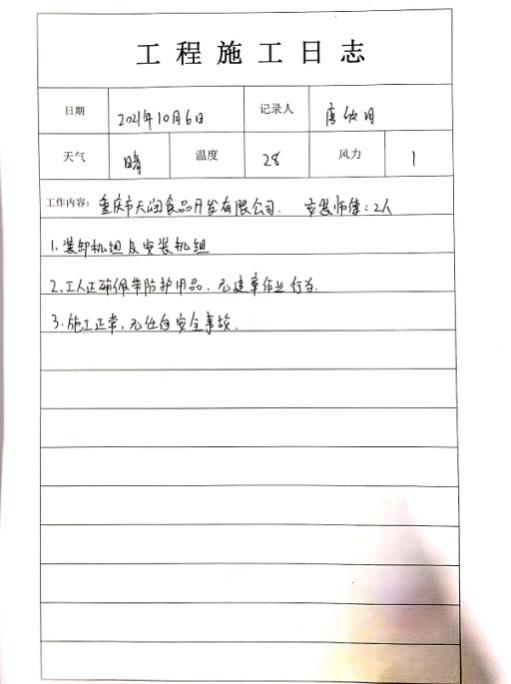 工程施工日志
日期 2021年10月6日 记录人 唐
天气 晴 温度 28 风力 1
工作内容: 重庆市天润食品开发有限公司. 安装师傅:2人
1.装卸机组及安装机组
2.工人正确佩带防护用品,无违章作业行为.
3.施工正常,无任何安全事故.